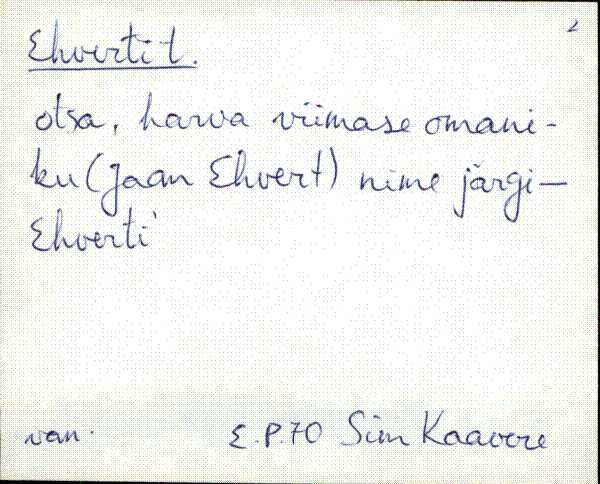 2
Ehverti t.
otsa, harva viimase omani-
ku (Jaan Ehvert) nime järgi—
Ehverti
van. E.P.70 Sim Kaavere